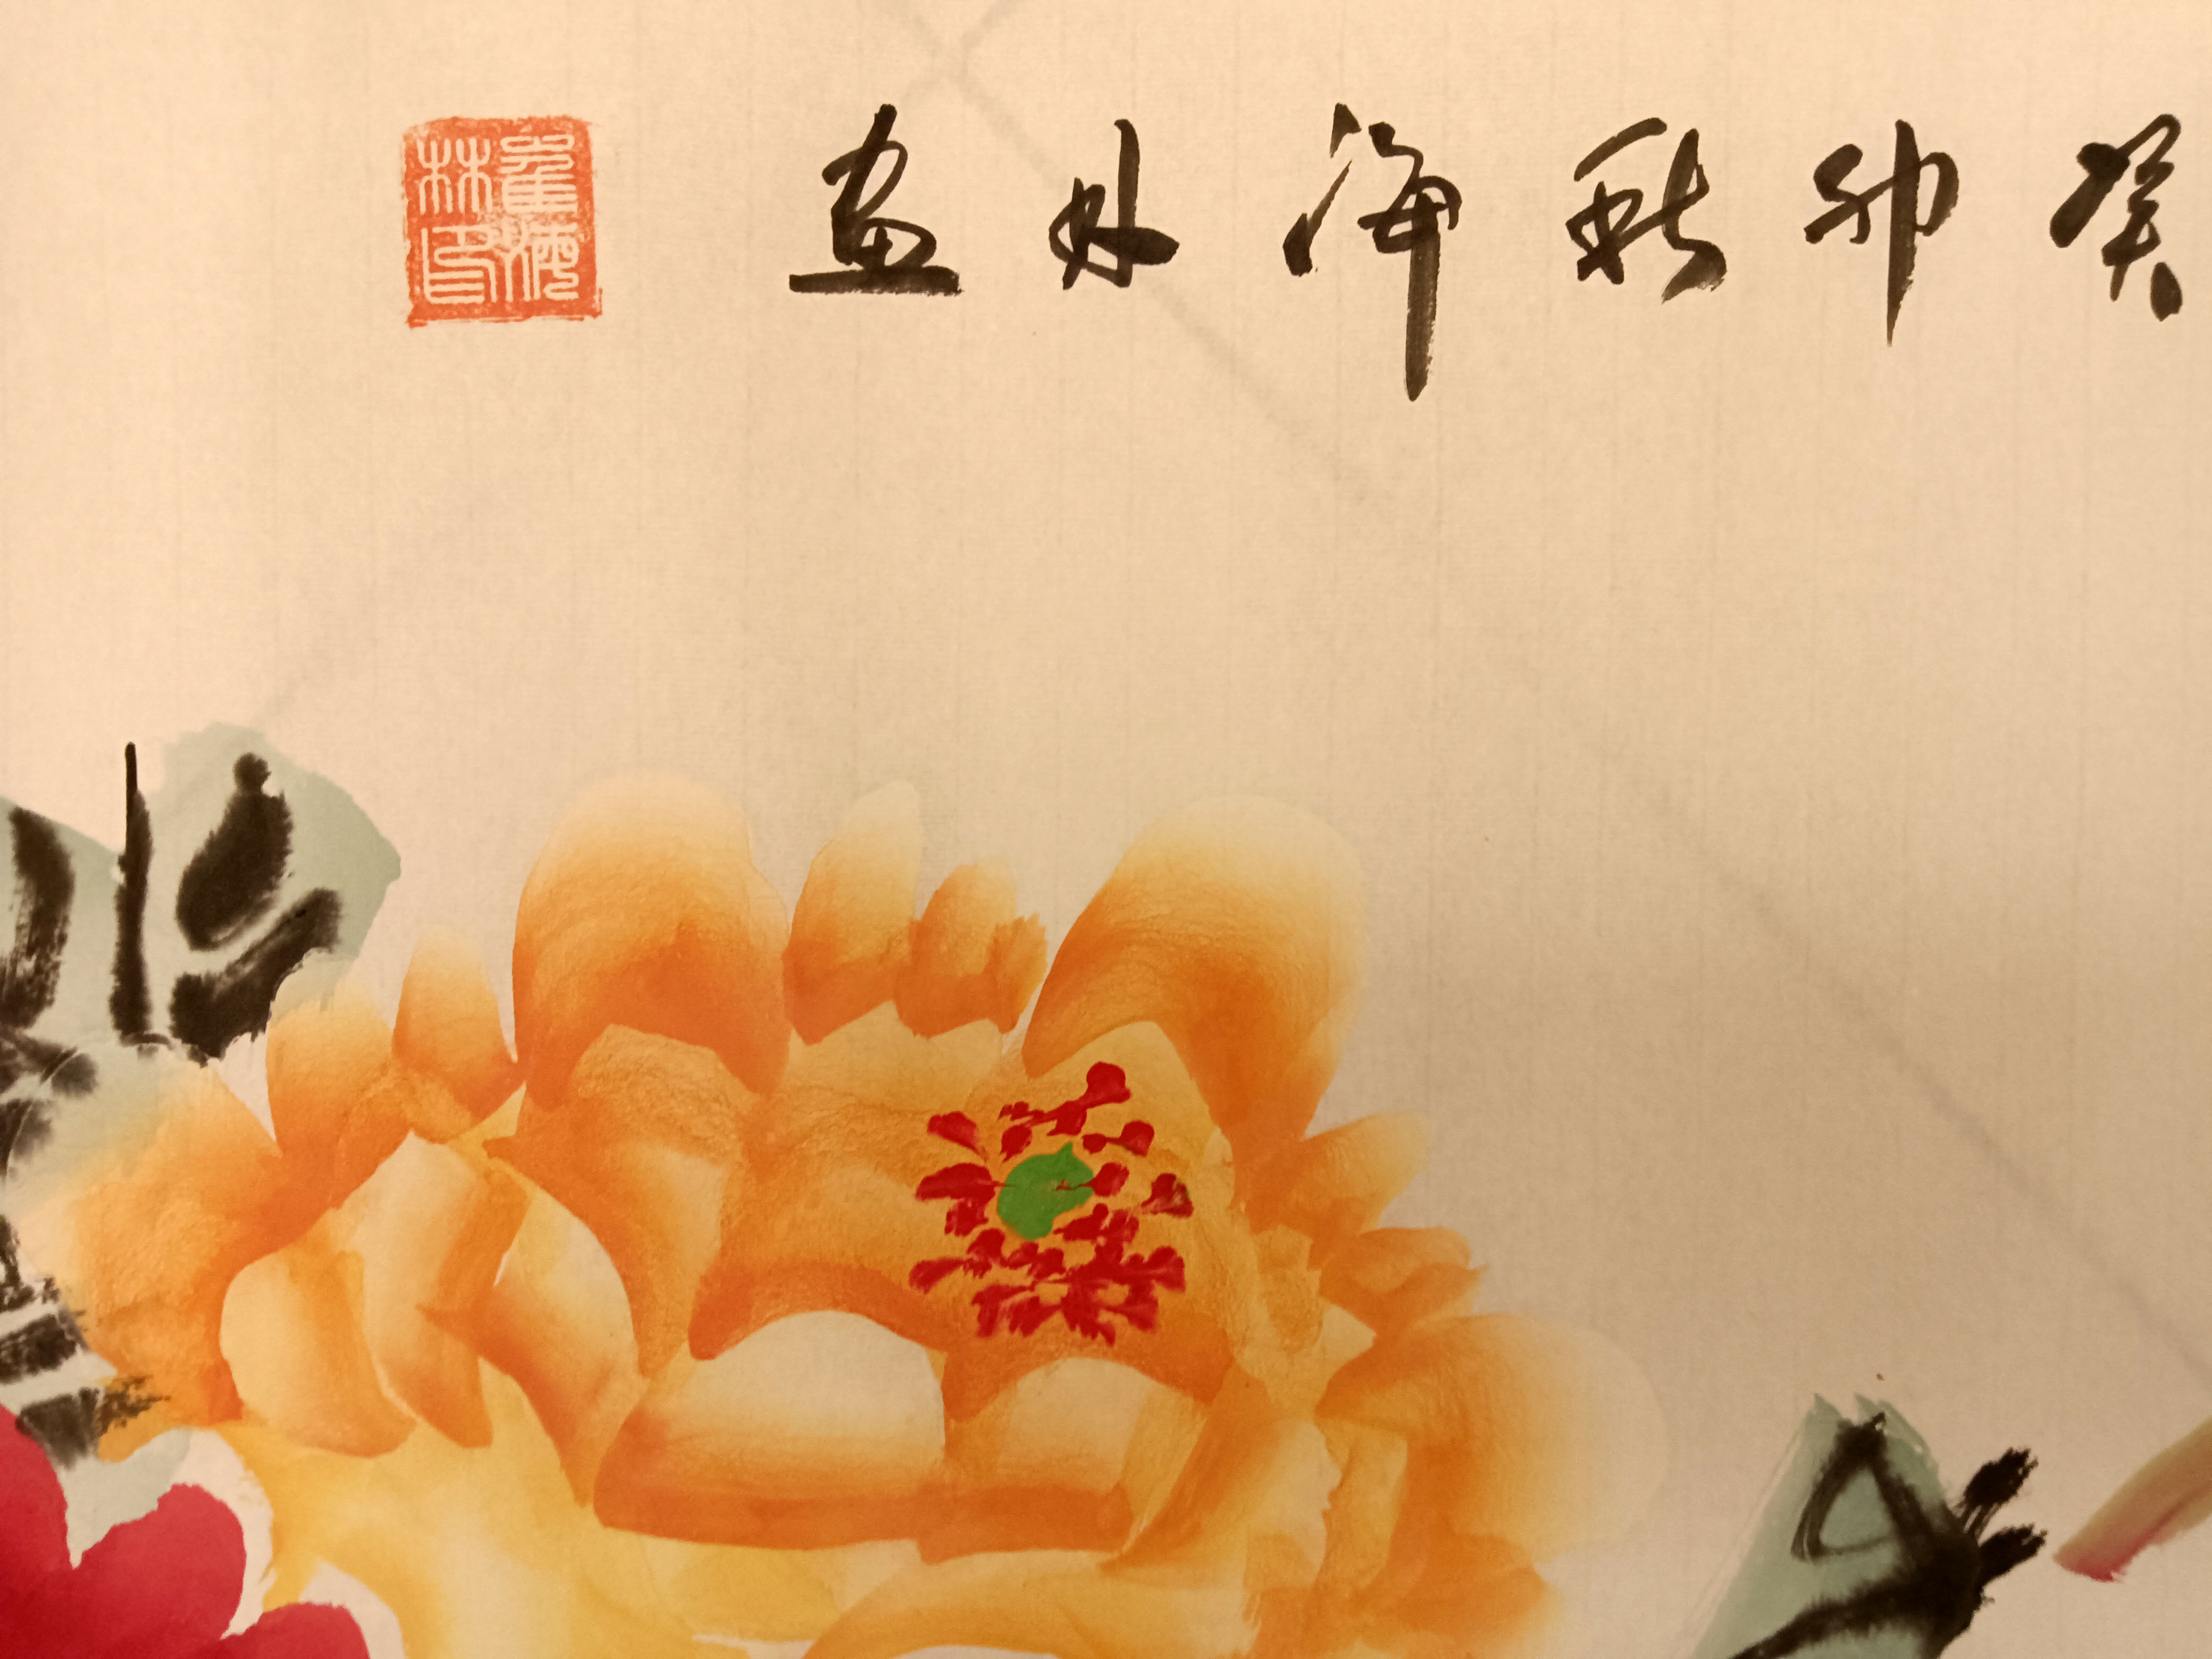 癸卯秋海林画
崔海林印